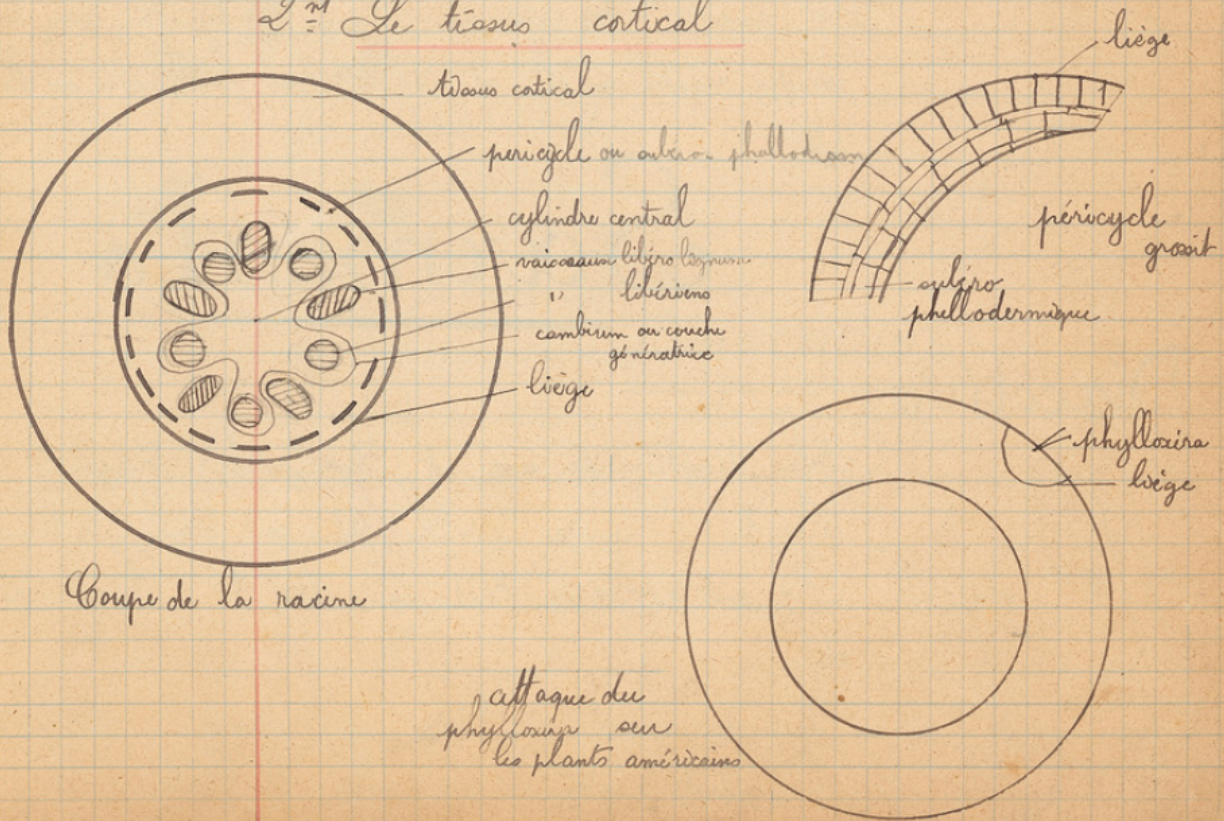 2nt Le tissus cortical
tissus cortical
pericycle ou subéro-phellodream
cylindre central
vaisseaux libéro ligneux
" libériens
cambium ou couche
génératrice
liège
Coupe de la racine
liège
péricycle
grossit
subéro
phellodermique
phylloxéra
liège
attaque du
phylloxéra sur
les plants américains